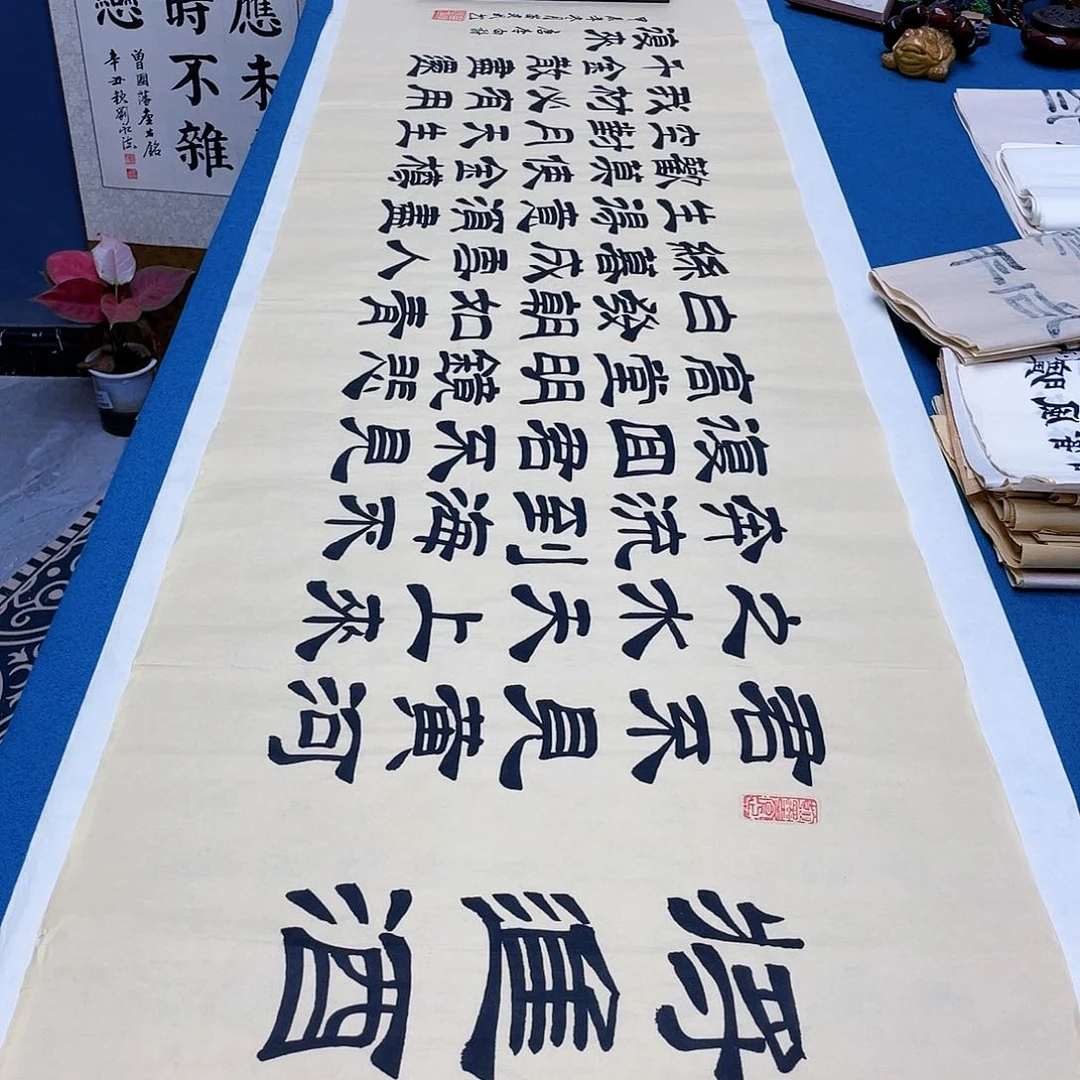 將進酒
君不見黃河
之水天上來
奔流到海不
復回君不見
高堂明鏡悲
白發朝如青
絲暮成雪人
生得意須盡
歡莫使金樽
空對月天生
我材必有用
千金散盡還
復來
應未
時不雜
戀
曾國藩座右銘